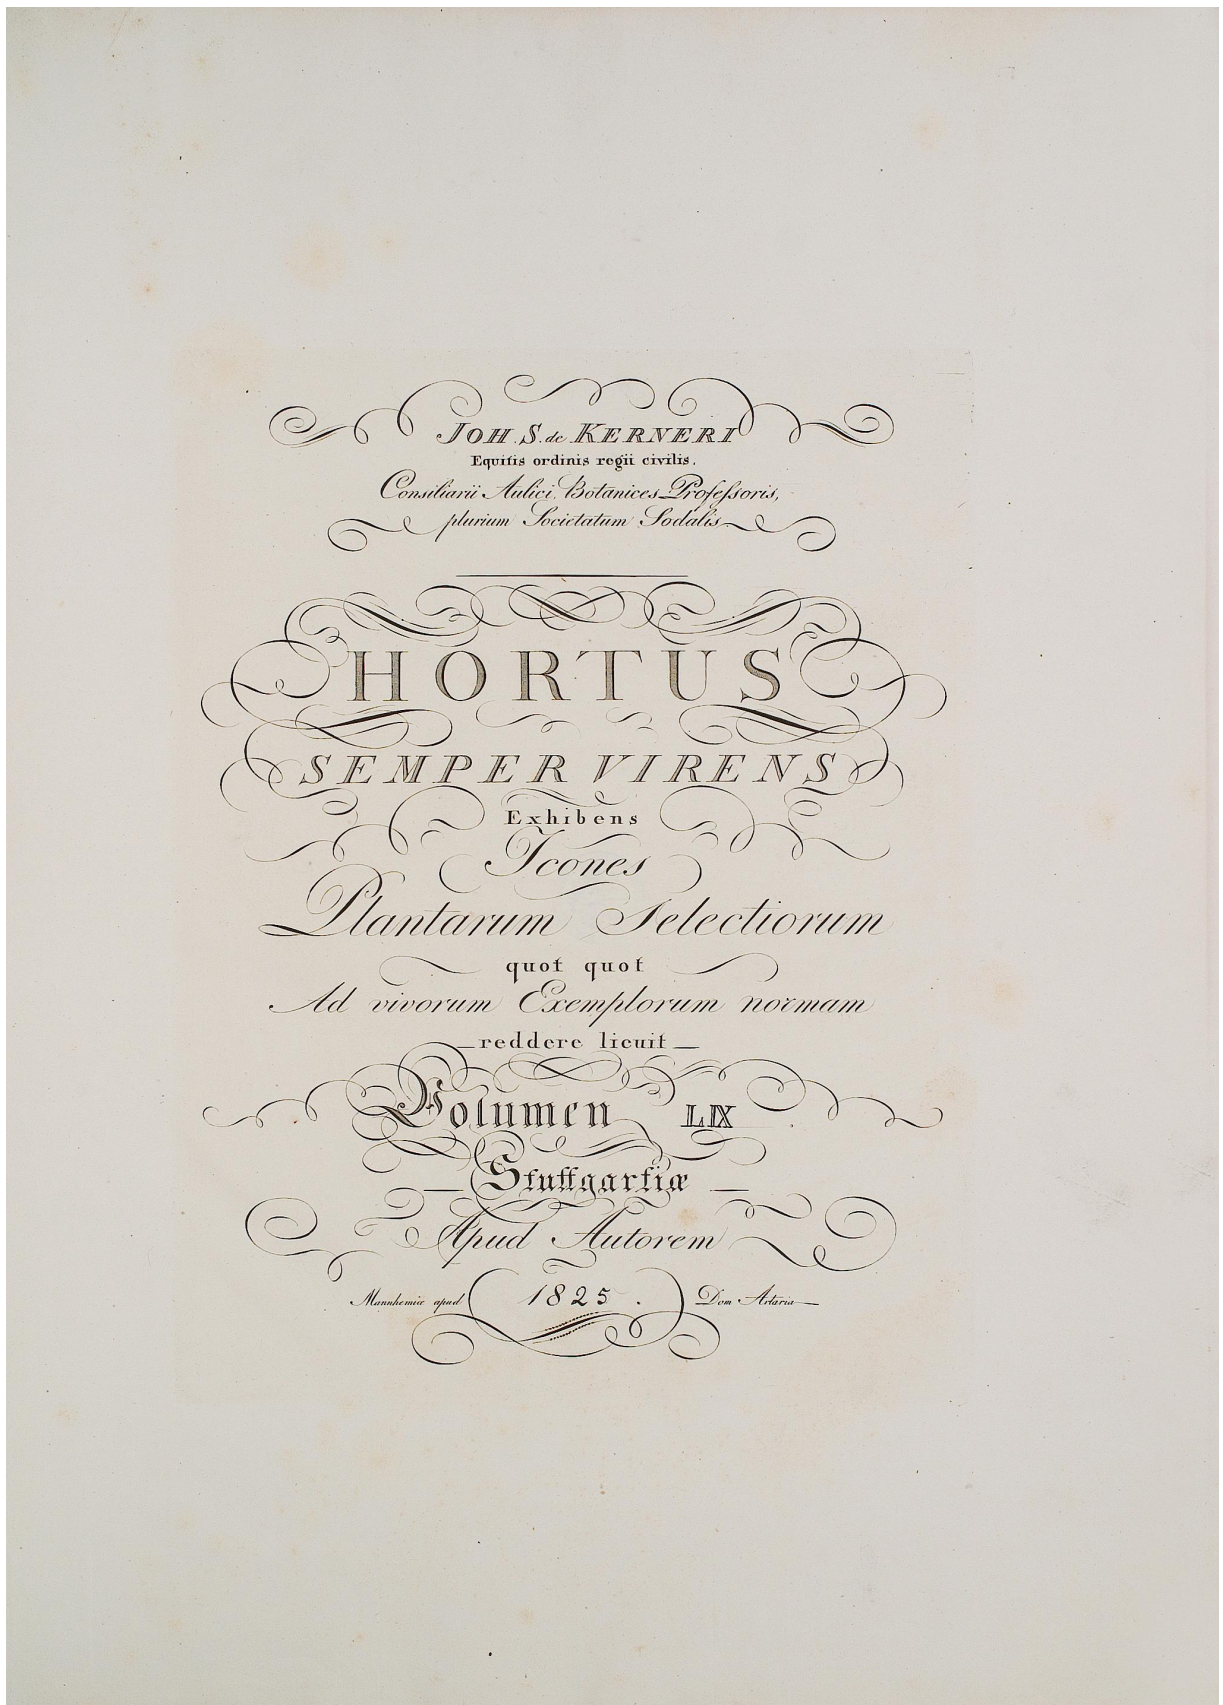 JOH. S. de KERNERI
Equitis ordinis regii civilis.
Consiliarii Aulici. Botanices Profeſsoris,
plurium Societatum Sodalis
HORTUS
SEMPER VIRENS
Exhibens
Icones
Plantarum Selectiorum
quot quot
Ad vivorum Exemplorum normam
reddere licuit
Volumen LIX
Stuttgartiæ
Apud Autorem
Mannhemiæ apud 1825. Dom Artaria